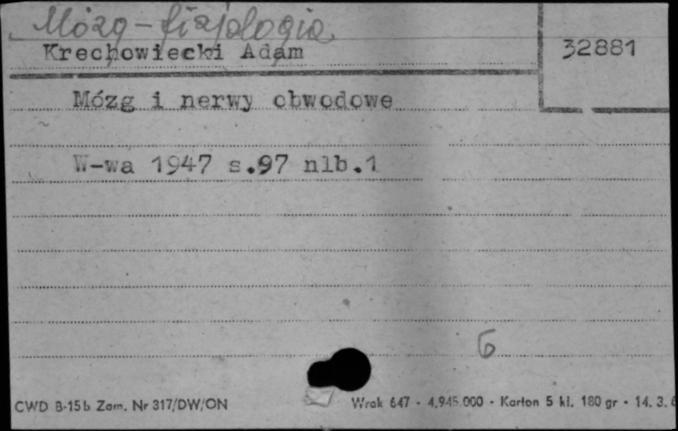 Mózg - fizjologia
Krechowiecki Adam
32881
Mózg i nerwy obwodowe
W-wa 1947 s.97 nlb.1
6
CWD B-15b Zam. Nr 317/DW/ON
Wrak 647 - 4.945.000 - Karton 5 kl. 180 gr - 14. 3.